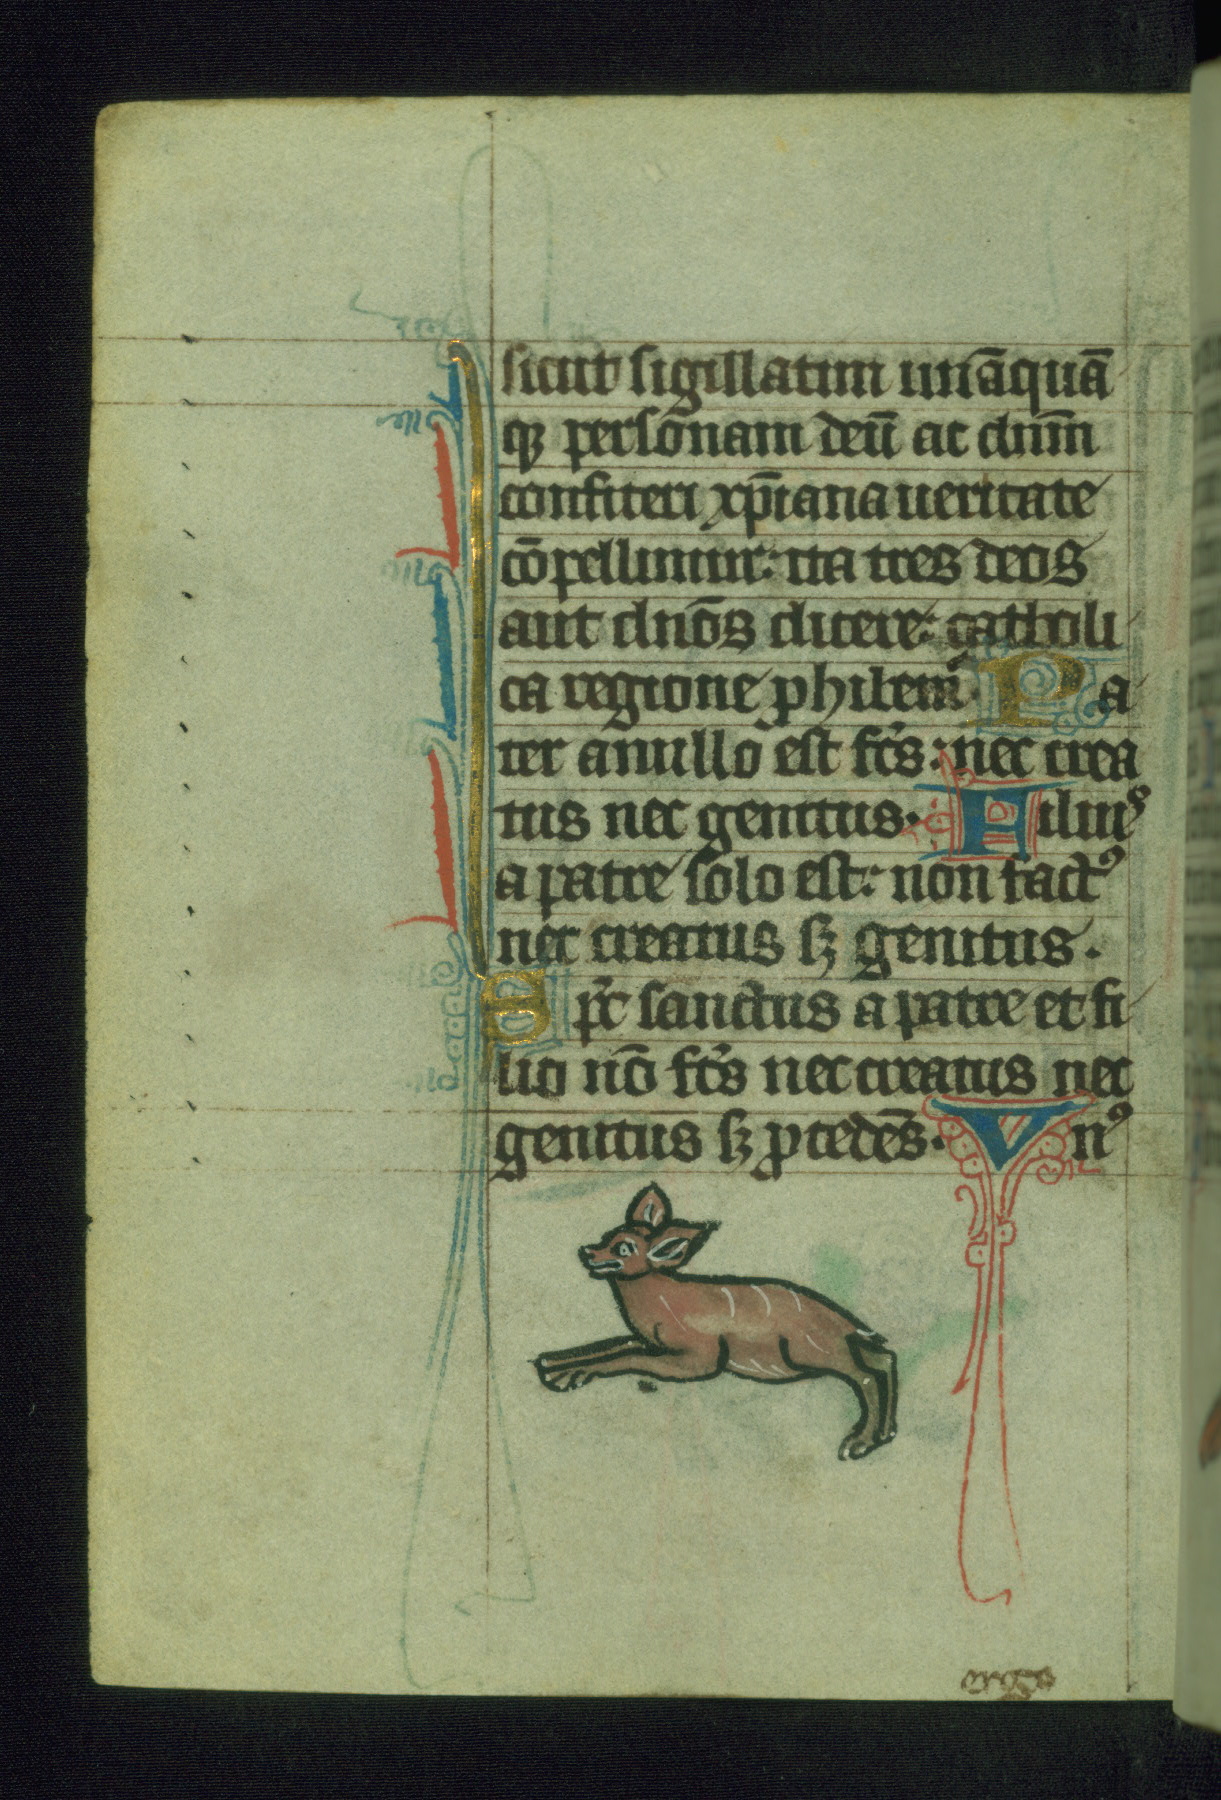 sicut sigillatim unāquā
qꝫ personam deū ac dnm̄
confiteri xp̄iana ueritate
cōpellimur: ita tres deos
aut dnōs dicere: catholi
ca regione phibem̄. Pa
ter a nullo est fc̄s: nec crea
tus nec genitus. Filiuꝰ
a patre solo est: non factꝰ
nec creatus sꝫ genitus.
Sp̄c sanctus a patre et fi
lio nō fc̄s nec creatus nec
genitus sꝫ pcedēs. Vnꝰ
ergo